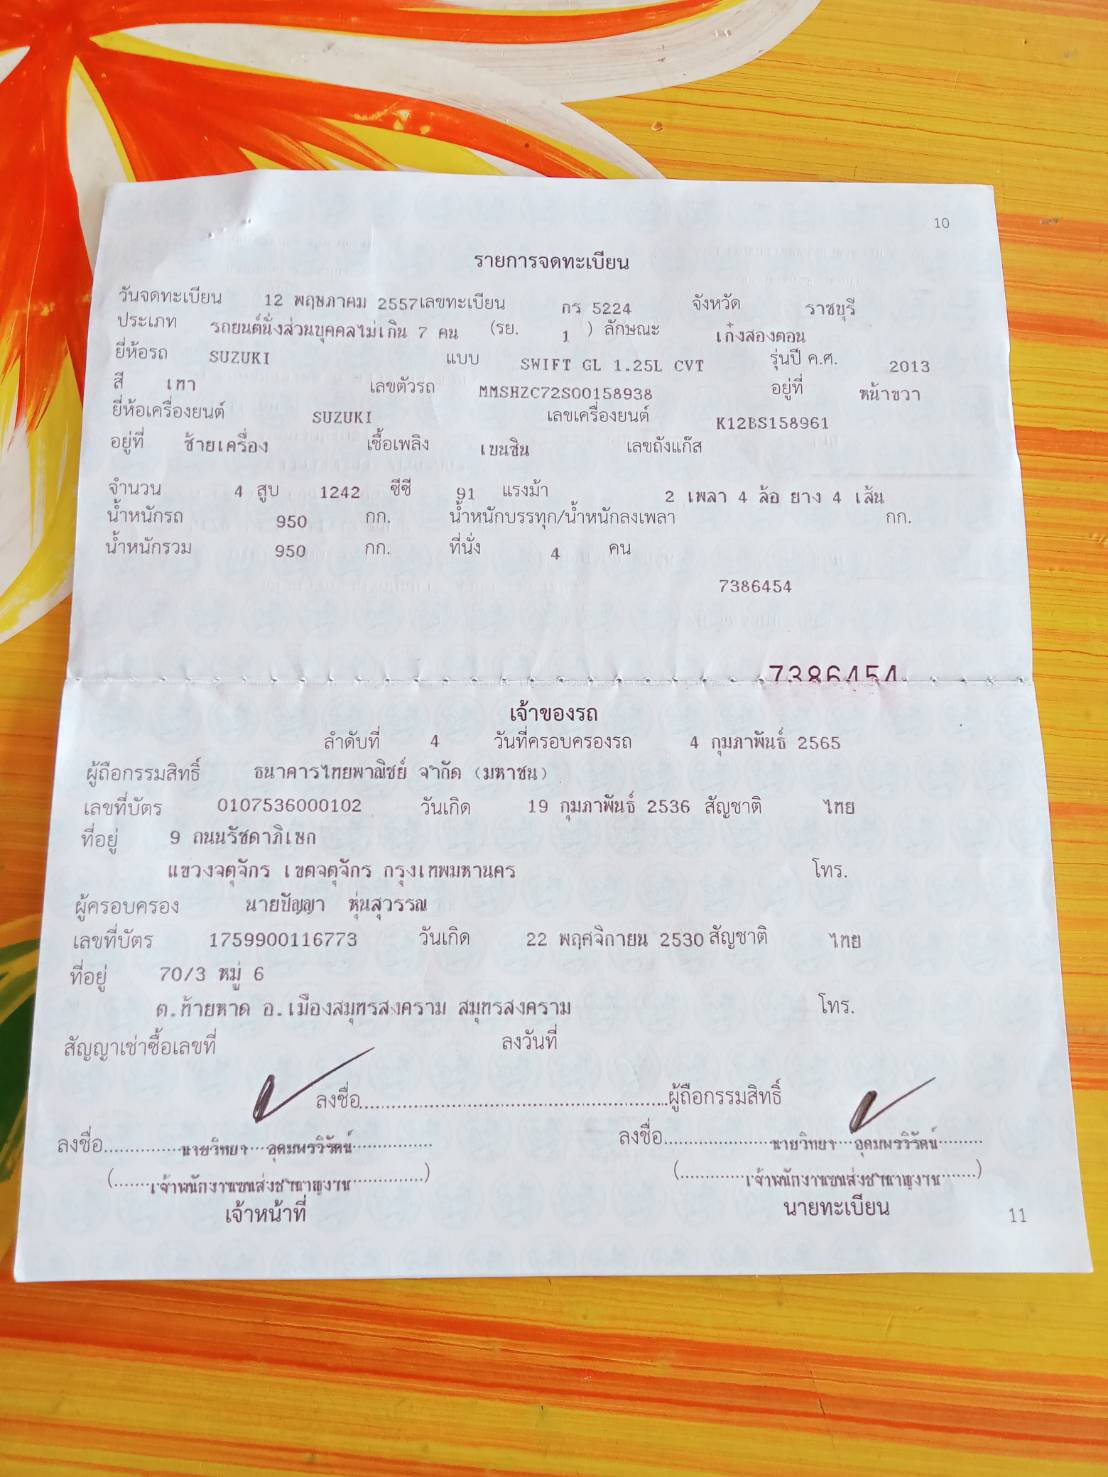 10
รายการจดทะเบียน
วันจดทะเบียน 12 พฤษภาคม 2557 เลขทะเบียน กร 5224 จังหวัด ราชบุรี
ประเภท รถยนต์นั่งส่วนบุคคลไม่เกิน 7 คน (รย. 1 ) ลักษณะ เก๋งสองตอน
ยี่ห้อรถ SUZUKI แบบ SWIFT GL 1.25L CVT รุ่นปี ค.ศ. 2013
สี เทา เลขตัวรถ MMSHZC72S00158938 อยู่ที่ หน้าขวา
ยี่ห้อเครื่องยนต์ SUZUKI เลขเครื่องยนต์ K12BS158961
อยู่ที่ ซ้ายเครื่อง เชื้อเพลิง เบนซิน เลขถังแก๊ส
จำนวน 4 สูบ 1242 ซีซี 91 แรงม้า 2 เพลา 4 ล้อ ยาง 4 เส้น
น้ำหนักรถ 950 กก. น้ำหนักบรรทุก/น้ำหนักลงเพลา กก.
น้ำหนักรวม 950 กก. ที่นั่ง 4 คน
7386454
7386454
เจ้าของรถ
ลำดับที่ 4 วันที่ครอบครองรถ 4 กุมภาพันธ์ 2565
ผู้ถือกรรมสิทธิ์ ธนาคารไทยพาณิชย์ จำกัด (มหาชน)
เลขที่บัตร 0107536000102 วันเกิด 19 กุมภาพันธ์ 2536 สัญชาติ ไทย
ที่อยู่ 9 ถนนรัชดาภิเษก
แขวงจตุจักร เขตจตุจักร กรุงเทพมหานคร โทร.
ผู้ครอบครอง นายปัญญา หุ่นสุวรรณ
เลขที่บัตร 1759900116773 วันเกิด 22 พฤศจิกายน 2530 สัญชาติ ไทย
ที่อยู่ 70/3 หมู่ 6
ต.ท้ายหาด อ.เมืองสมุทรสงคราม สมุทรสงคราม โทร.
สัญญาเช่าซื้อเลขที่ ลงวันที่
ลงชื่อ..............................ผู้ถือกรรมสิทธิ์
ลงชื่อ..........นายวิทยา อุดมพรวิรัตน์.......... ลงชื่อ..........นายวิทยา อุดมพรวิรัตน์..........
(.....เจ้าพนักงานขนส่งชำนาญงาน.....) (.....เจ้าพนักงานขนส่งชำนาญงาน.....)
เจ้าหน้าที่ นายทะเบียน
11